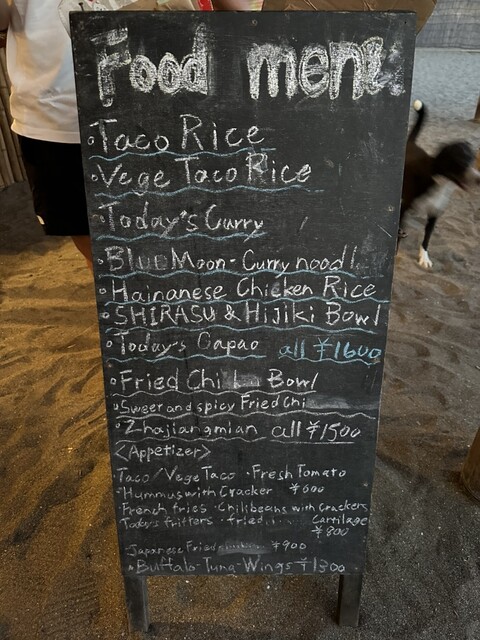 Food menu
Taco Rice
Vege Taco Rice
Today's Curry
Blue Moon-Curry noodl
Hainanese Chicken Rice
SHIRASU & Hijiki Bowl
Today's Gapao all ¥1600
Fried Bowl
Sweet and spicy Fried Chi
Zhajiangmian all ¥1500
<Appetizer>
Taco/Vege Taco ・Fresh Tomato
・Hummus with Cracker ¥600
・French fries ・Chilibeans with crackers
Today's fritters ・fried Cartilage
¥800
Japanese Fried ¥900
・Buffalo-Tuna-Wings ¥1300